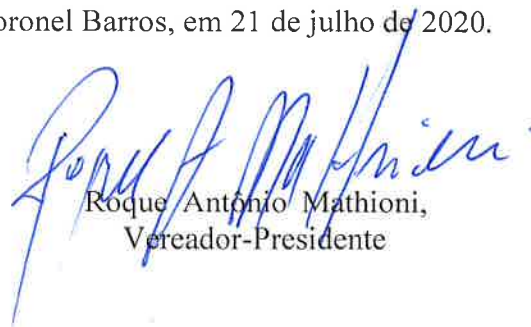 oronel Barros, em 21 de julho de 2020.
Roque A Mathioni
Roque Antônio Mathioni,
Vereador-Presidente